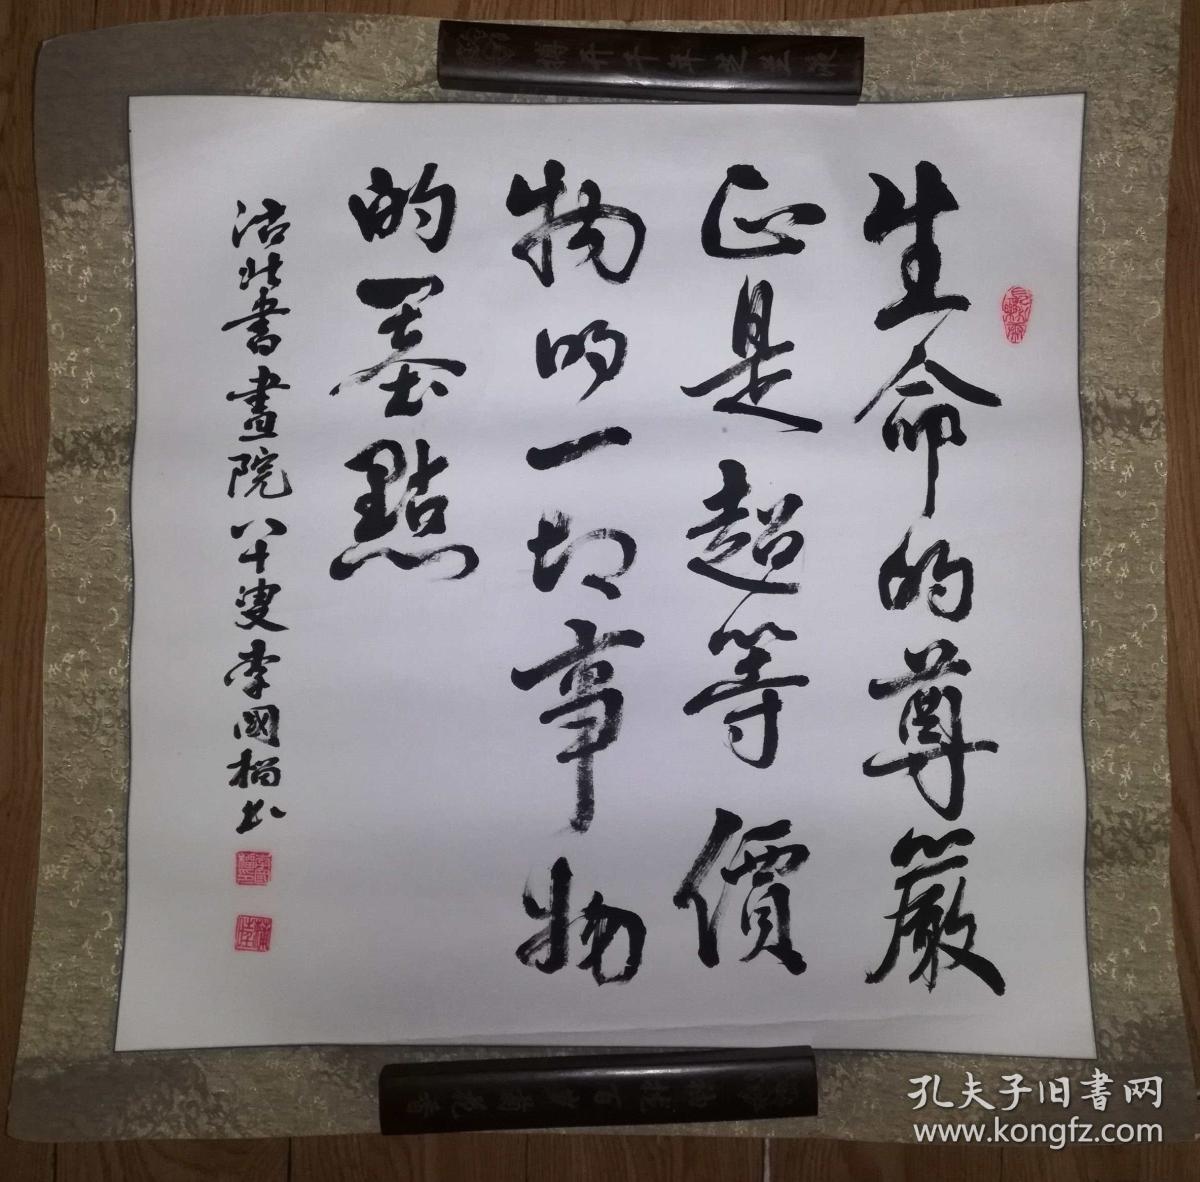 生命的尊嚴
正是超等價
物的一切事物
的墨點
沽北書畫院八十叟李國楊书
孔夫子旧書网
www.kongfz.com